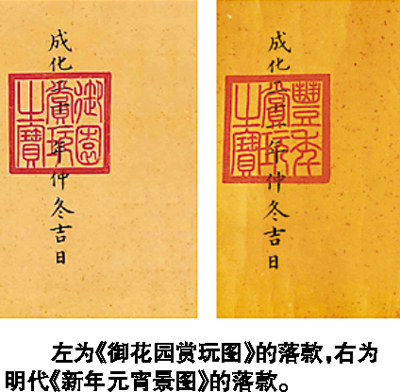 成化二十一年仲冬吉日
御園
賞玩
之寶
成化二十一年仲冬吉日
豐年
賞玩
之寶
左为《御花园赏玩图》的落款,右为
明代《新年元宵景图》的落款。